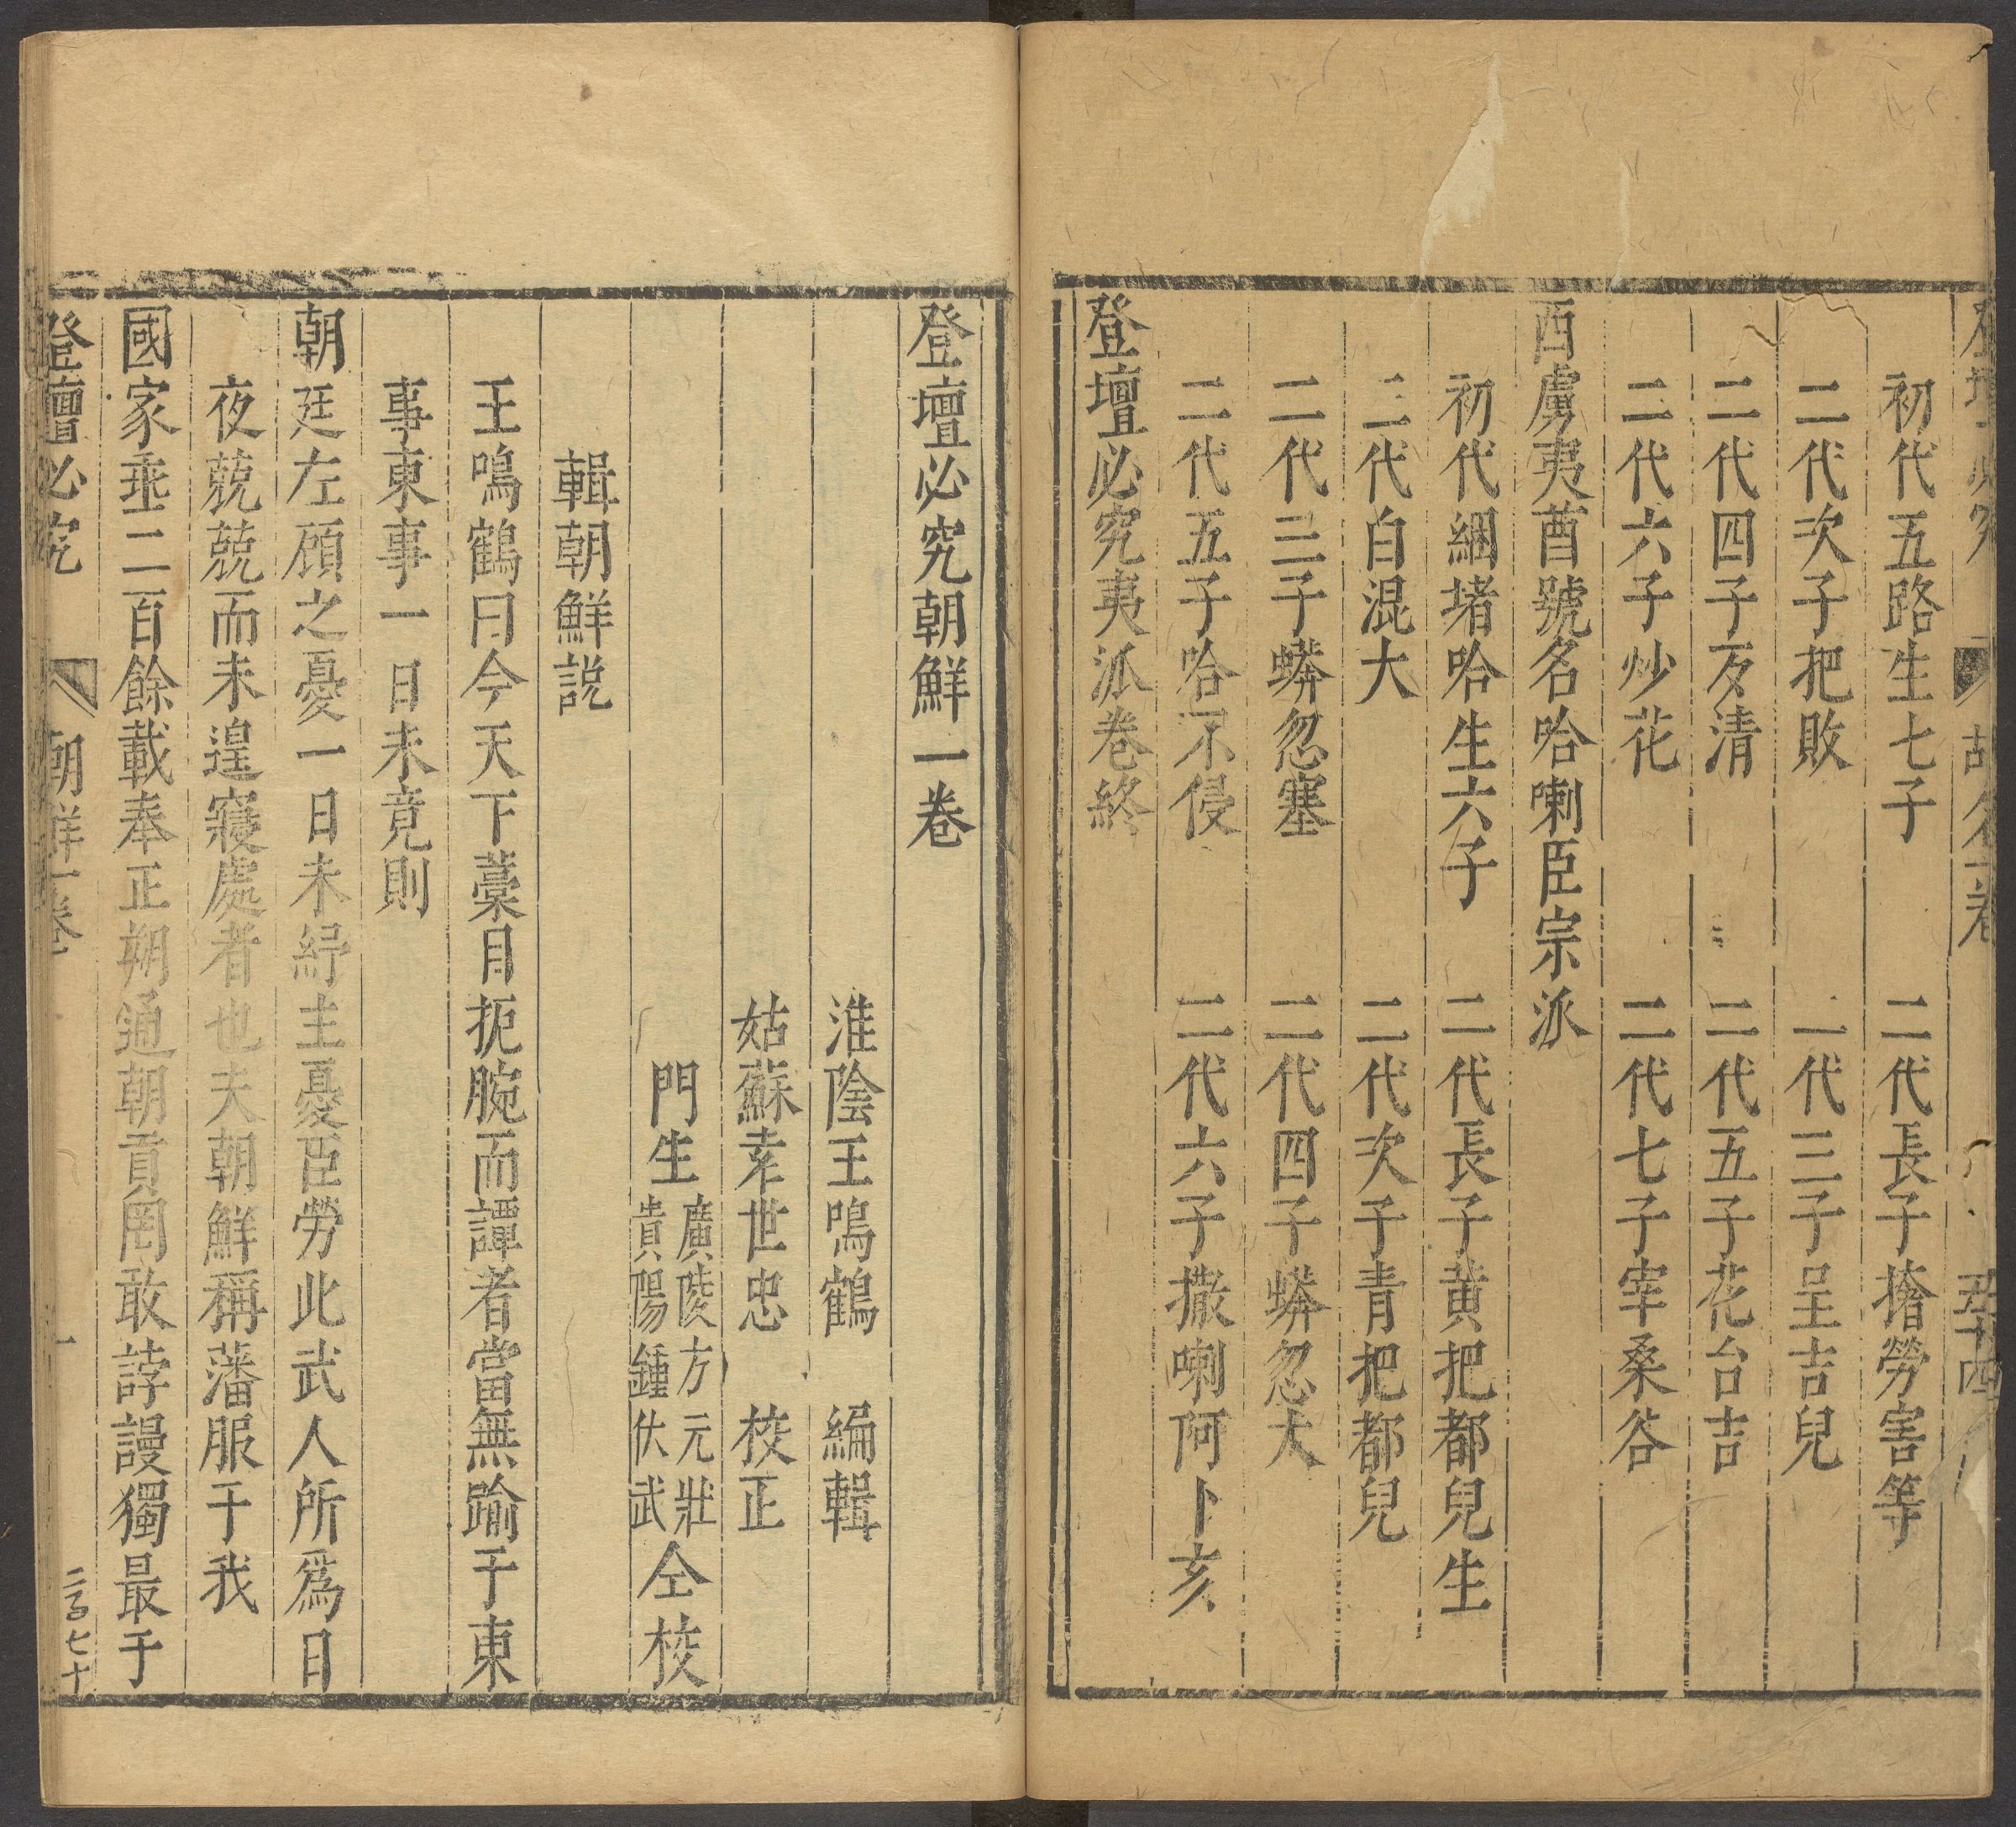 初代五路生七子 二代長子㨯勞害等
二代次子把敗 二代三子呈吉兒
二代四子反清 二代五子花台吉
二代六子炒花 二代七子宰桑谷
西虜夷酋號名哈喇臣宗派
初代綑堵哈生六子 二代長子黄把都兒生
二代白混大 二代次子青把都兒
二代三子蟒忽塞 二代四子蟒忽大
二代五子哈不侵 二代六子撒喇阿卜亥
登壇必究夷派卷終
登壇必究朝鮮一卷
淮陰王鳴鶴 編輯
姑蘇袾世忠 校正
門生 廣陵方元壯 貴陽鍾伏武 仝校
輯朝鮮説
王鳴鶴曰今天下蒿目扼腕而譚者當無踰于東
事東事一日未竟則
朝廷左顧之憂一日未紓主憂臣勞此武人所爲日
夜兢兢而未遑寢處者也夫朝鮮稱藩服于我
國家垂二百餘載奉正朔通朝貢罔敢誖謾獨最于
登壇必究 朝鮮一卷 一 二百七十